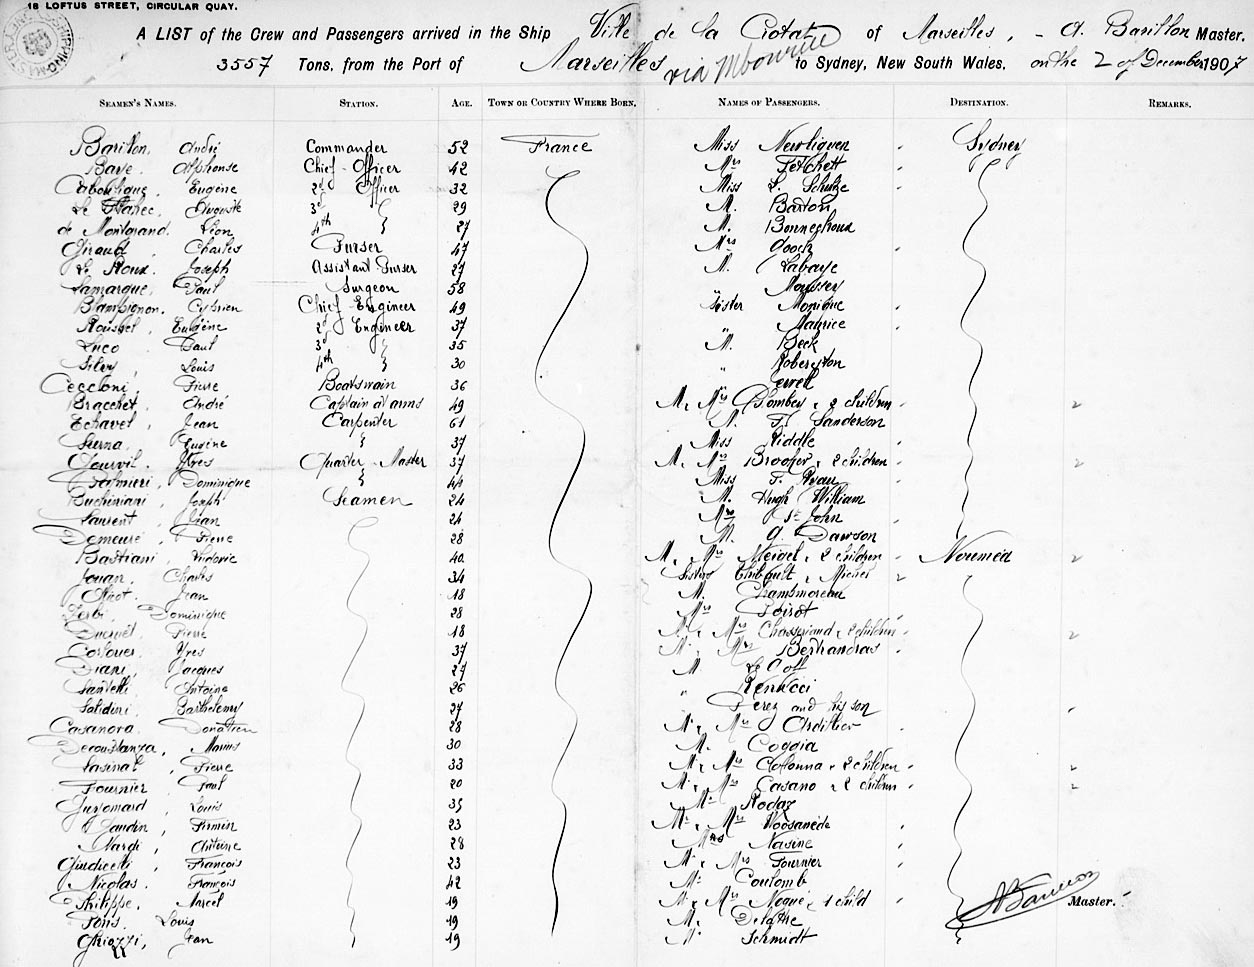 18 LOFTUS STREET, CIRCULAR QUAY.
A LIST of the Crew and Passengers arrived in the Ship Ville de la Ciotat of Marseilles, - A. Barillon Master.
3557 Tons, from the Port of Marseilles via Mbourne to Sydney, New South Wales, on the 2 of December 1907
SEAMEN'S NAMES. STATION. AGE. TOWN OR COUNTRY WHERE BORN. NAMES OF PASSENGERS. DESTINATION. REMARKS.
Barillon, André Commander 52 France Miss Sydney
Alphonse Chief Officer 42 Mrs Fetchett
Eugène 2d Officer 32 Miss L. Schulze
Auguste 3d 29 M. Barton
de Montgrand. Léon 4th 27 M.
Giraud, Charles Purser 47 Mrs Gooch
Le Roux. Joseph Assistant Purser 27 M. Labaye
Lamarque, Paul Surgeon 58
Blampignon. Cyprien Chief Engineer 49 Sister Monique
Roussel, Eugène 2d Engineer 37 " Maurice
Luco Paul 3d 35 M. Beck
Silvy, Louis 4th 30 " Robertson
Ceccioni, Pierre Boatswain 36 "
Bracchet, André Captain d'arms 49 M. Mrs 2 children
Echavel, Jean Carpenter 61 M. F. Sanderson
Serna, Eugène 37 Miss Riddle
Yves Quarter-Master 37 M. Mrs 2 children
Dominique 44 Miss F. Ryan
Joseph Seamen 24 M. Hugh William
Laurent, Jean 24 Mrs St John
Demeure, Pierre 28 M. G. Dawson
Bastiani, 40. M. Mrs 2 children Nouméa
Jouan. Charles 34 Sisters Thibault, Michel
Jean 18 M. Chambmoreau
Dominique 28 Mrs Poirot
Pierre 18 M. Mrs 2 children
Yves 37 M. Mrs Berthandras
Diani, Jacques 27 M Le Goff
Santelli Antoine 26 " Renucci
Barthelemy 27 Perez and his son
Casanova. Donatien 28 M. Mrs Ardillier
Marius 30 M. Coggia
Pierre 33 M. Mrs Colonna, 2 children
Fournier, Paul 20 M. Mrs Casano, 2 children
Guyomard, Louis 35 Mr
Firmin 23 M. Mrs
Nardi, Antoine 28 Mrs Nasine
Giudicelli François 23 M. Mrs Fournier
Nicolas. François 42 M. Coulomb
Philippe, Marcel 19 M. Mrs 1 child Master.
Pons. Louis 19 M. Delathe
Ghiozzi, Jean 19 M. Schmidt